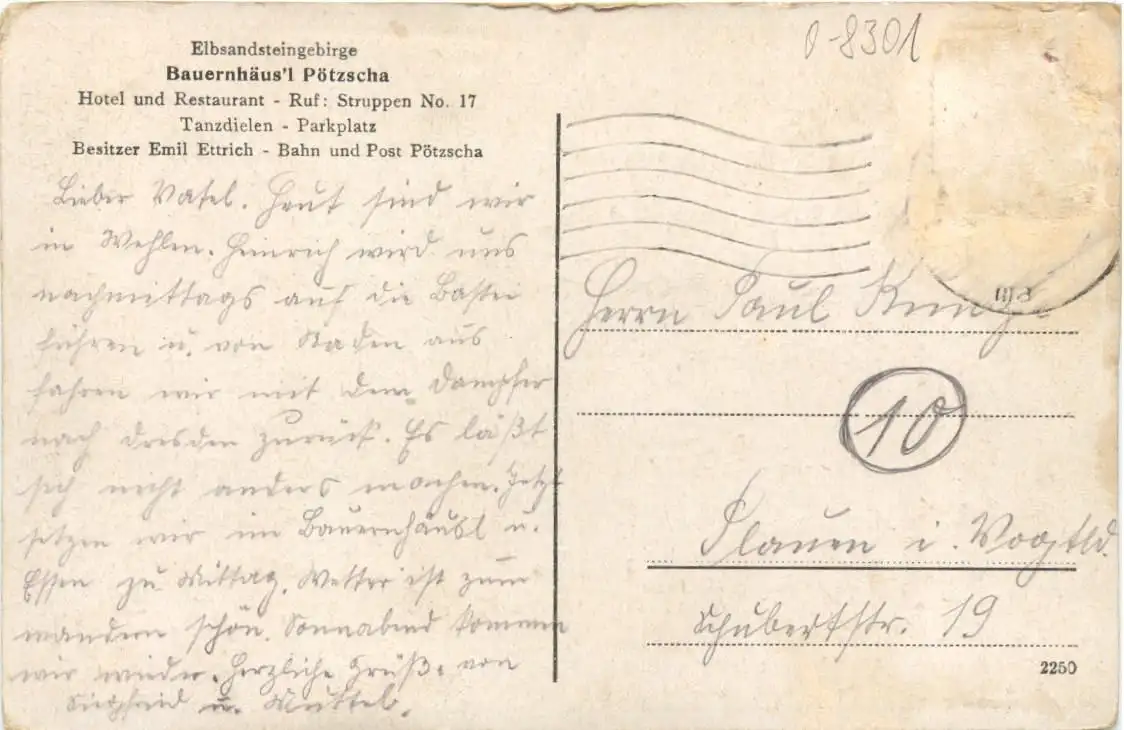 Elbsandsteingebirge
Bauernhäus'l Pötzscha
Hotel und Restaurant - Ruf: Struppen No. 17
Tanzdielen - Parkplatz
Besitzer Emil Ettrich - Bahn und Post Pötzscha
Lieber Vatel. Heut sind wir
in Wehlen. Heinrich wird uns
nachmittags auf die Bastei
führen u. von Raden aus
fahren wir mit dem Dampfer
nach Dresden zurück. Es läßt
sich nicht anders machen. Jetzt
sitzen wir im Bauernhäusl u.
Essen zu Mittag. Wetter ist zum
wandern schön. Sonnabend kommen
wir wieder. Herzliche Grüße von
Siegfried u. Muttel.
0-8301
Herrn Paul
10
Plauen i. Vogtld.
Schubertstr. 19
2250